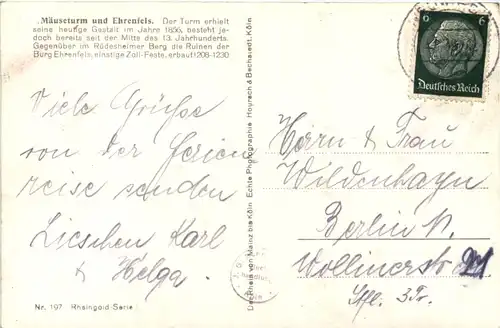 „Mäuseturm und Ehrenfels. Der Turm erhielt
seine heutige Gestalt im Jahre 1856, besteht je-
doch bereits seit der Mitte des 13. Jahrhunderts.
Gegenüber im Rüdesheimer Berg die Ruinen der
Burg Ehrenfels, einstige Zoll-Feste, erbaut 1208-1230
Viele Grüße
von der Ferien
reise senden
Lieschen Karl
& Helga.
Nr. 197 Rheingold-Serie
Der Rhein von Mainz bis Köln. Echte Photographie Hoursch & Bechstedt, Köln
6 6
Deutsches Reich
Herrn & Frau
Wildenhayn
Berlin N.
Wollinerstr
3Tr.